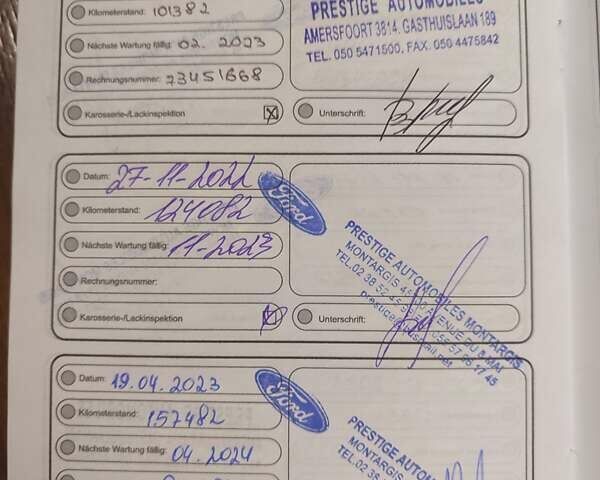 Kilometerstand: 101382
PRESTIGE AUTOMOBILES
AMERSFOORT 3814. GASTHUISLAAN 189
Nächste Wartung fällig: 02. 2023
TEL. 050 5471500. FAX. 050 4475842
Rechnungsnummer: 73451668
Karosserie-/Lackinspektion
Unterschrift:
Datum: 27-11-2022
Ford
Kilometerstand: 124082
Nächste Wartung fällig: 11-2023
PRESTIGE AUTOMOBILES MONTARGIS
MONTARGIS AVENUE DU 8 MAI
TEL.02 38 52
Rechnungsnummer:
Karosserie-/Lackinspektion
Unterschrift:
Datum: 19.04.2023
Ford
Kilometerstand: 157482
Nächste Wartung fällig: 04.2024
PRESTIGE AUTOMOBILES
MONTARGIS
TEL.02 38